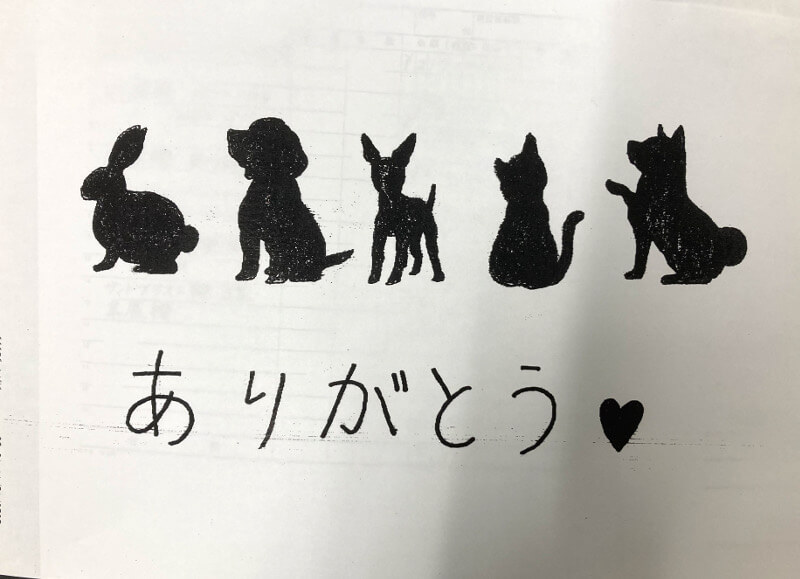 ありがとう♥